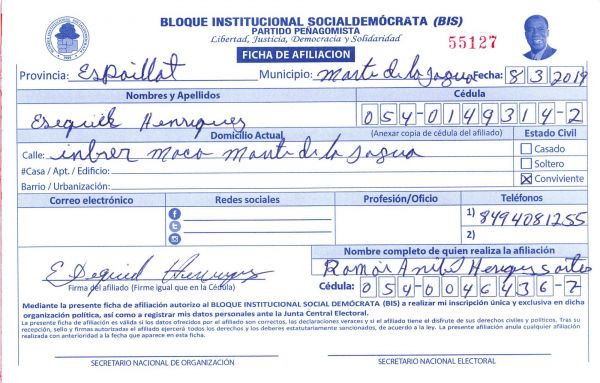 BLOQUE INSTITUCIONAL SOCIALDEMÓCRATA (BIS)
PARTIDO PEÑAGOMISTA
Libertad, Justicia, Democracia y Solidaridad
55127
FICHA DE AFILIACION
Provincia: Espaillat Municipio: Monte de la Jagua Fecha: 8 3 2019
Nombres y Apellidos Cédula
Esequiel Henriquez 054-0149314-2
Domicilio Actual (Anexar copia de cédula del afiliado) Estado Civil
Calle: Moca Monte de la Jagua Casado
#Casa / Apt. / Edificio: Soltero
Barrio / Urbanización: Conviviente
Correo electrónico Redes sociales Profesión/Oficio Teléfonos
1) 8494081255
2)
Nombre completo de quien realiza la afiliación
Esequiel Henriquez Ramón
Firma del afiliado (Firme igual que en la Cédula) Cédula: 054-0046436-7
Mediante la presente ficha de afiliación autorizo al BLOQUE INSTITUCIONAL SOCIAL DEMÓCRATA (BIS) a realizar mi inscripción única y exclusiva en dicha
organización política, así como a registrar mis datos personales ante la Junta Central Electoral.
La presente ficha de afiliación es válida si los datos ofrecidos por el afiliado son correctos, las declaraciones veraces y si el afiliado tiene el disfrute de sus derechos civiles y políticos. Tras su
recepción, sello y firmas autorizadas el afiliado ejercerá todos los derechos y los deberes estatutariamente sancionados, de acuerdo a la ley. La presente afiliación anula cualquier afiliación
realizada con anterioridad a la fecha que aparece en esta ficha.
SECRETARIO NACIONAL DE ORGANIZACIÓN SECRETARIO NACIONAL ELECTORAL